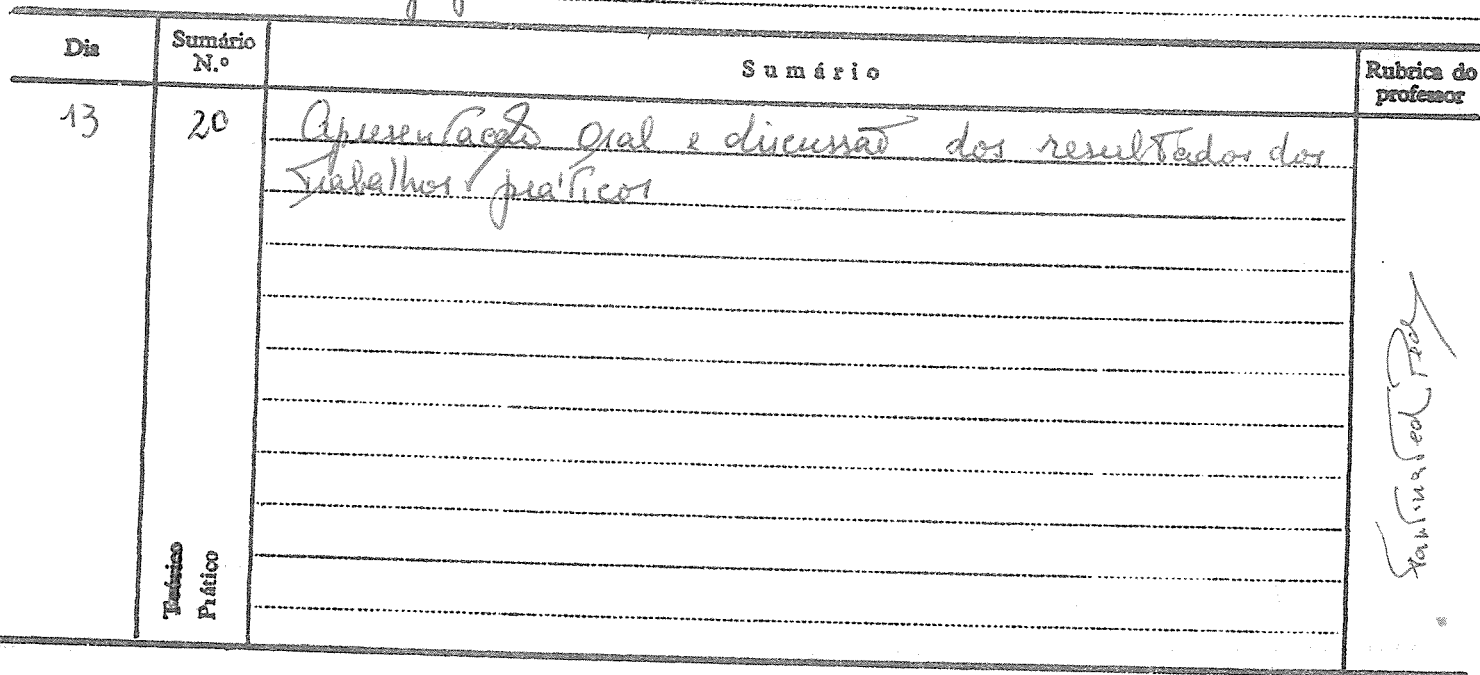 Dia
Sumário
N.º
Sumário
Rubrica do
professor
13
20
Apresentação oral e discussão dos resultados dos
Trabalhos práticos
Teórico
Prático